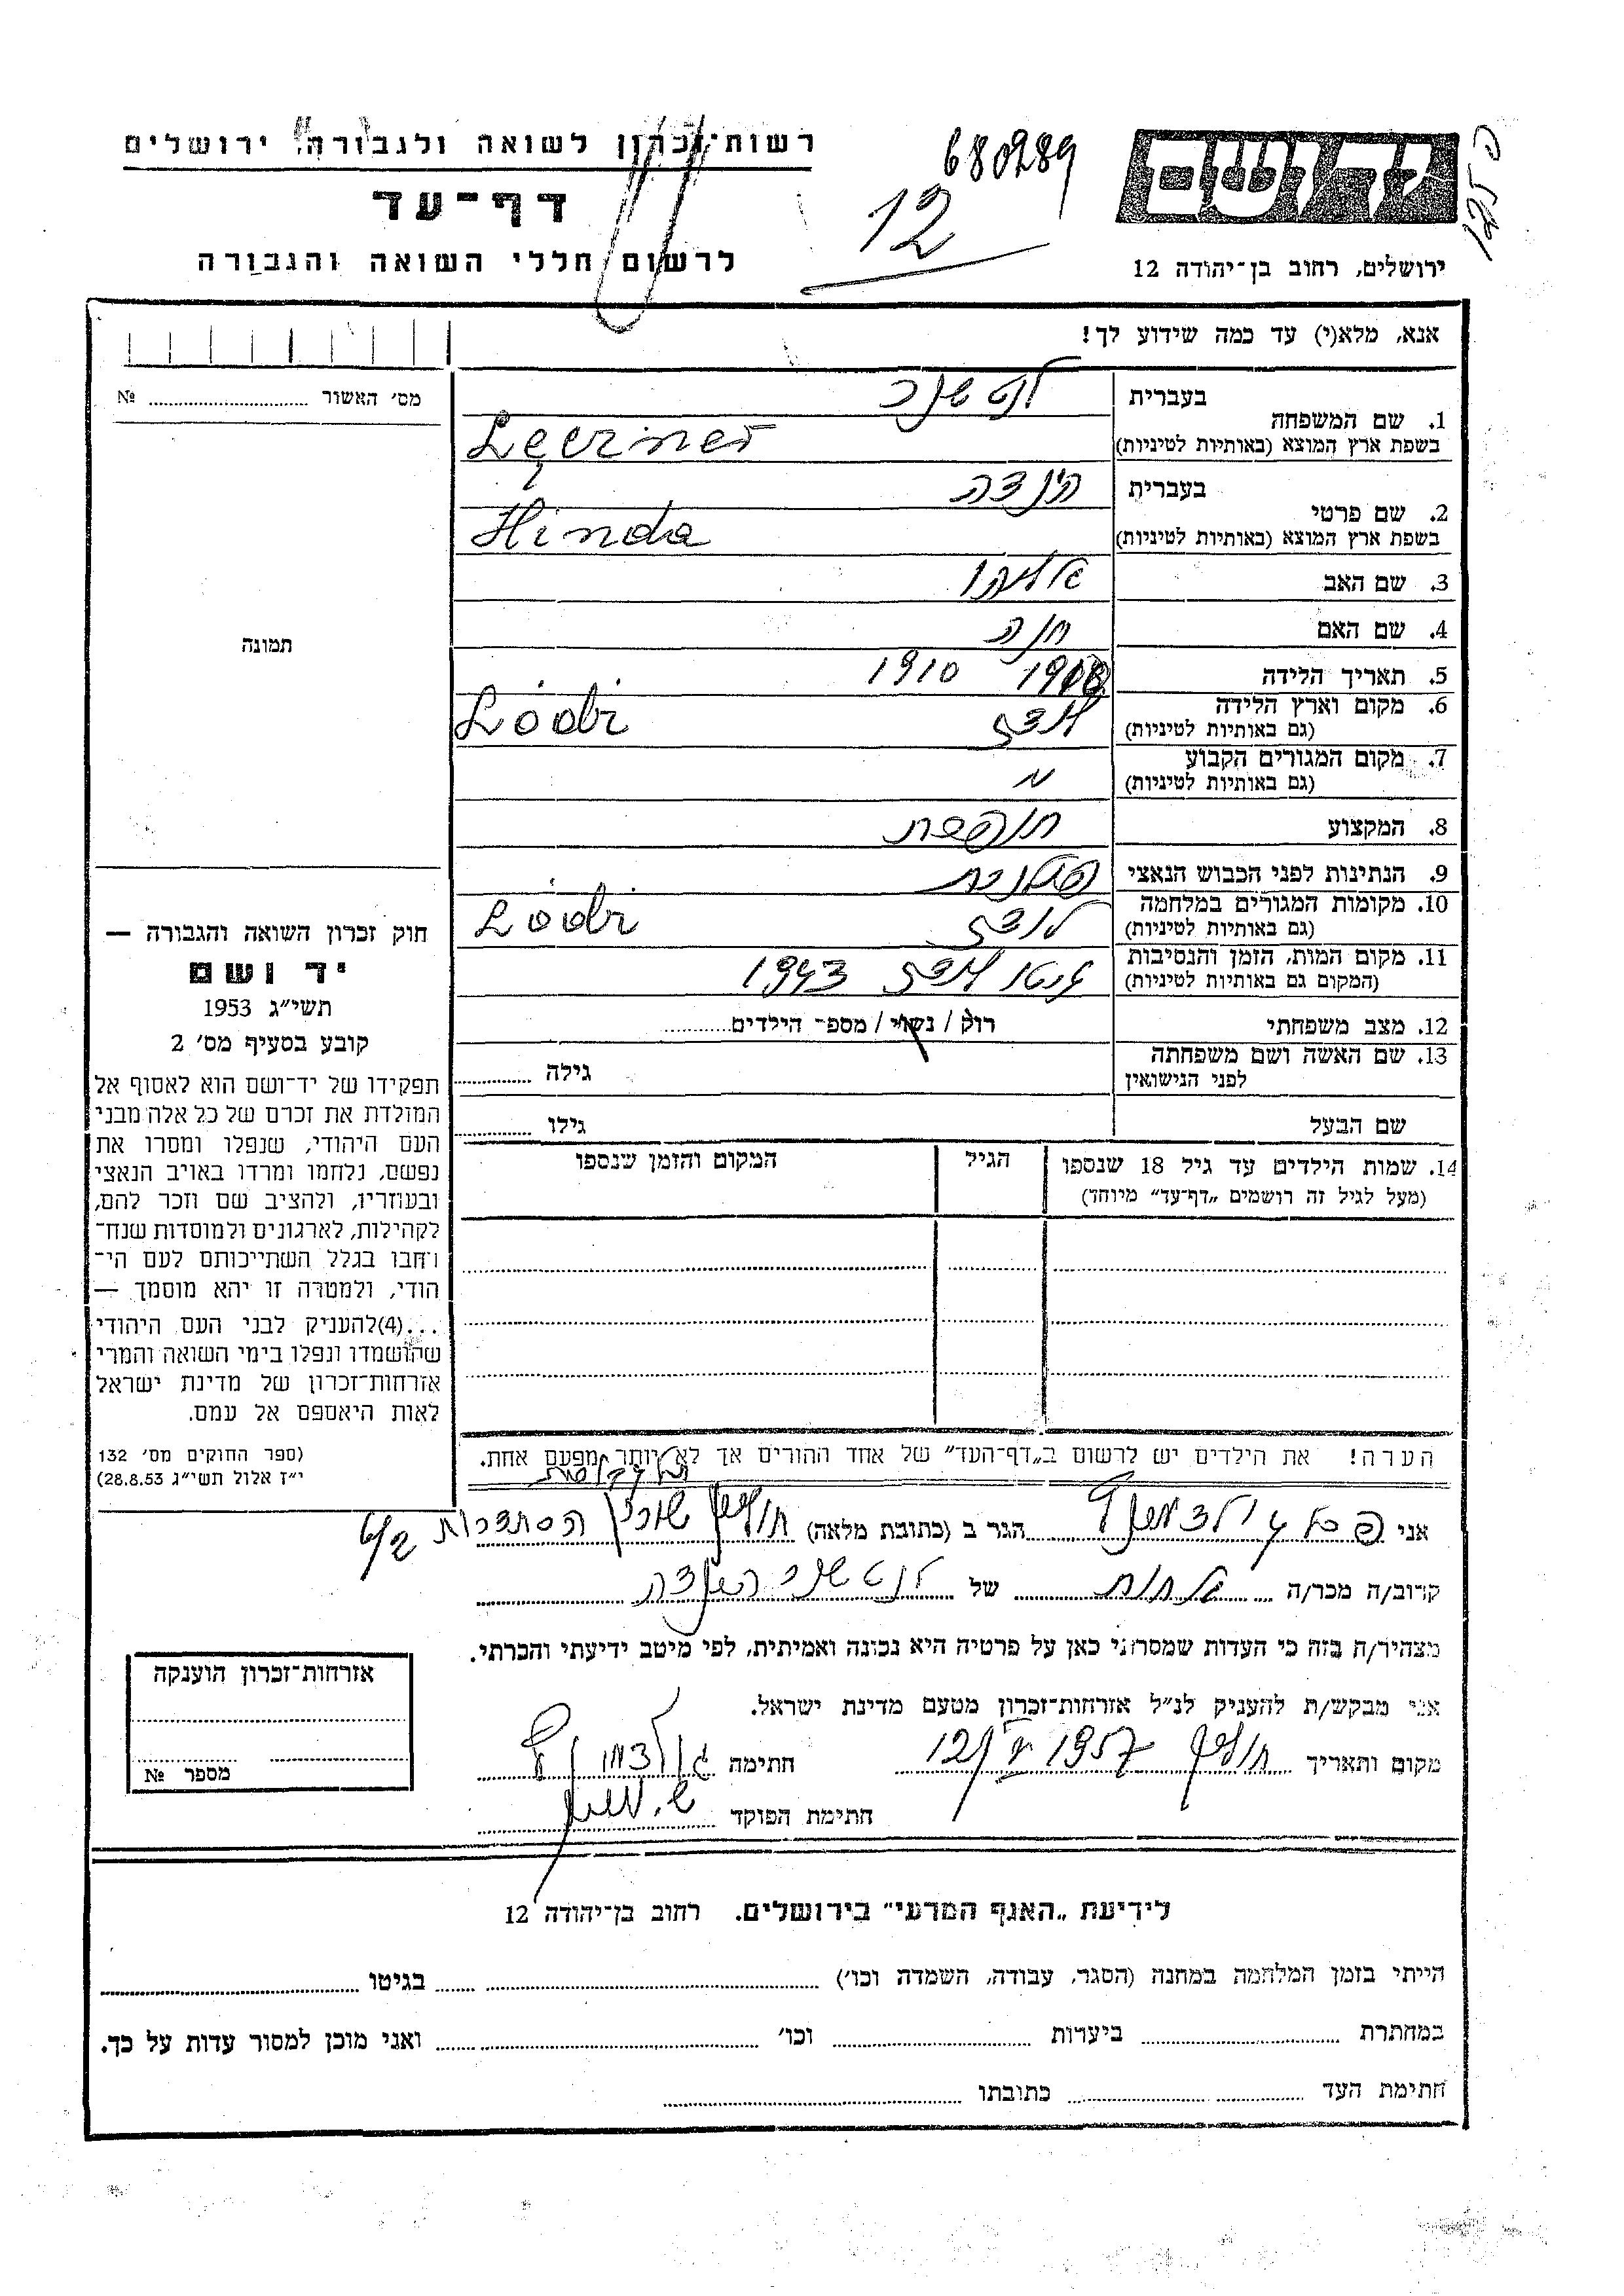 רשות־זכרון לשואה ולגבורה, ירושלים
דף־עד
לרשום חללי השואה והגבורה
680289
12
יד ושם
ירושלים, רחוב בן־יהודה 12
אנא, מלא(י) עד כמה שידוע לך!
מס' האשור № 
תמונה
1. שם המשפחה
בעברית
בשפת ארץ המוצא (באותיות לטיניות)
2. שם פרטי
בעברית הינדה
בשפת ארץ המוצא (באותיות לטיניות) Hinda
3. שם האב
4. שם האם חנה
5. תאריך הלידה 1910
6. מקום וארץ הלידה
(גם באותיות לטיניות) לודז Lodzi
7. מקום המגורים הקבוע
(גם באותיות לטיניות) "
8. המקצוע תופרת
9. הנתינות לפני הכבוש הנאצי פולנית
10. מקומות המגורים במלחמה
(גם באותיות לטיניות) לודז Lodzi
11. מקום המות, הזמן והנסיבות
(המקום גם באותיות לטיניות) גטו לודז 1943
12. מצב משפחתי רווק / נשוי / מספר הילדים
13. שם האשה ושם משפחתה
לפני הנישואין גילה
שם הבעל גילו
14. שמות הילדים עד גיל 18 שנספו הגיל המקום והזמן שנספו
(מעל לגיל זה רושמים „דף־עד" מיוחד)
חוק זכרון השואה והגבורה —
יד ושם
תשי"ג 1953
קובע בסעיף מס' 2
תפקידו של יד־ושם הוא לאסוף אל
המולדת את זכרם של כל אלה מבני
העם היהודי, שנפלו ומסרו את
נפשם, נלחמו ומרדו באויב הנאצי
ובעוזריו, ולהציב שם וזכר להם,
לקהילות, לארגונים ולמוסדות שנח־
רבו בגלל השתייכותם לעם הי־
הודי, ולמטרה זו יהא מוסמך —
...(4)להעניק לבני העם היהודי
שהושמדו ונפלו בימי השואה והמרי
אזרחות־זכרון של מדינת ישראל
לאות היאספם אל עמם.
(ספר החוקים מס' 132
י"ז אלול תשי"ג 28.8.53)
הערה! את הילדים יש לרשום ב„דף־העד" של אחד ההורים אך לא יותר מפעם אחת.
אני הגר ב (כתובת מלאה) חולון שכון הסתדרות 6/2
קרוב/ה מכר/ה של הינדה
מצהיר/ה בזה כי העדות שמסרתי כאן על פרטיה היא נכונה ואמיתית, לפי מיטב ידיעתי והכרתי.
אני מבקש/ת להעניק לנ"ל אזרחות־זכרון מטעם מדינת ישראל.
מקום ותאריך חולון 1957 חתימה
חתימת הפוקד
אזרחות־זכרון הוענקה
מספר №
לידיעת „האגף המדעי" בירושלים. רחוב בן־יהודה 12
הייתי בזמן המלחמה במחנה (הסגר, עבודה, השמדה וכו') בגיטו
במחתרת ביערות וכו' ואני מוכן למסור עדות על כך.
חתימת העד כתובתו